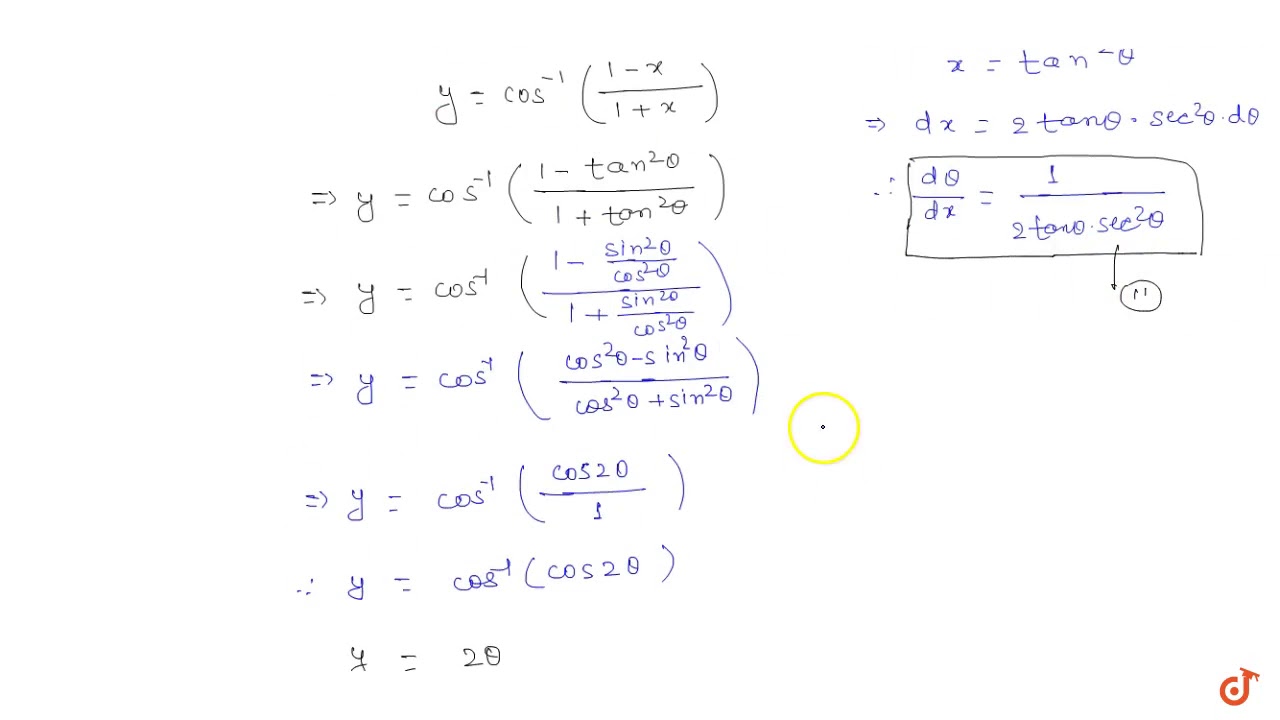 y = cos⁻¹ ( (1 - x) / (1 + x) )
⇒ y = cos⁻¹ ( (1 - tan²θ) / (1 + tan²θ) )
⇒ y = cos⁻¹ ( (1 - sin²θ/cos²θ) / (1 + sin²θ/cos²θ) )
⇒ y = cos⁻¹ ( (cos²θ - sin²θ) / (cos²θ + sin²θ) )
⇒ y = cos⁻¹ ( cos2θ / 1 )
∴ y = cos⁻¹ ( cos2θ )
y = 2θ
x = tan²θ
⇒ dx = 2 tanθ · sec²θ · dθ
∴ dθ/dx = 1 / (2 tanθ · sec²θ)